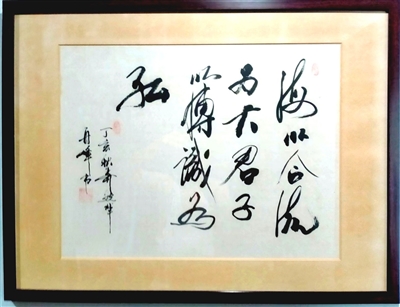 海以合流
为大君子
以博識為
弘
丁亥秋